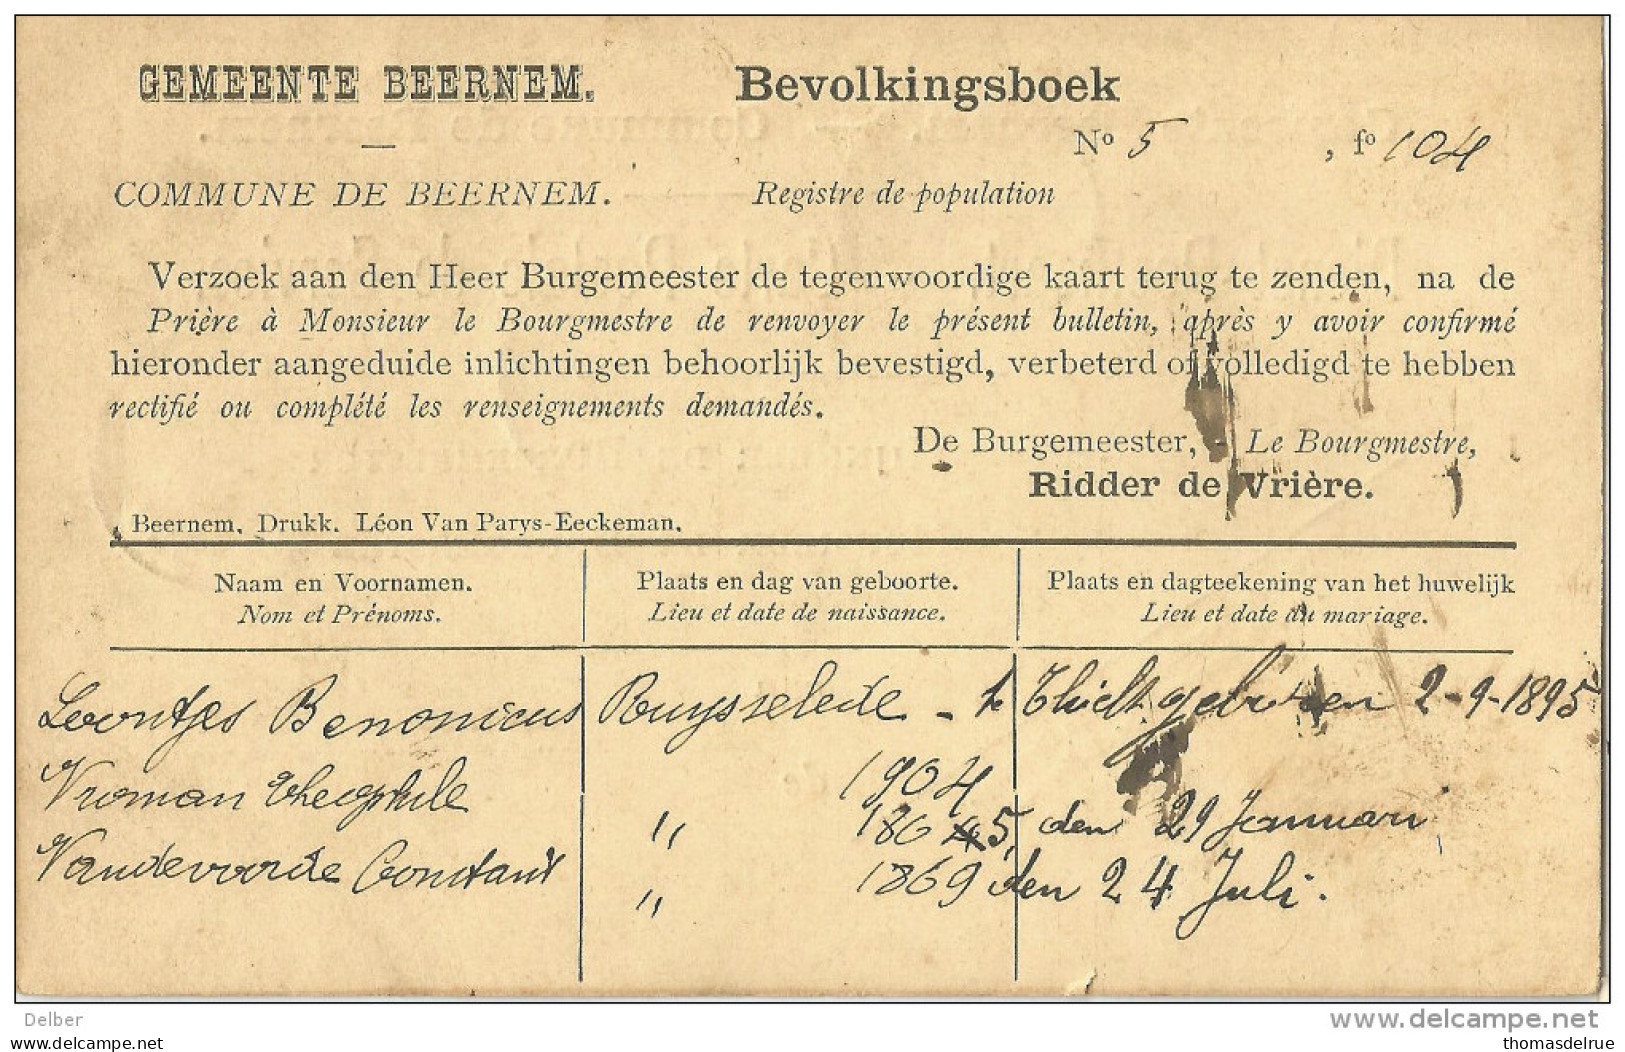 GEMEENTE BEERNEM. Bevolkingsboek
Nº 5 , fº 104
COMMUNE DE BEERNEM. Registre de population
Verzoek aan den Heer Burgemeester de tegenwoordige kaart terug te zenden, na de
Prière à Monsieur le Bourgmestre de renvoyer le présent bulletin, après y avoir confirmé
hieronder aangeduide inlichtingen behoorlijk bevestigd, verbeterd of volledigd te hebben
rectifié ou complété les renseignements demandés.
De Burgemeester, - Le Bourgmestre,
Ridder de Vrière.
Beernem, Drukk. Léon Van Parys-Eeckeman.
Naam en Voornamen. Plaats en dag van geboorte. Plaats en dagteekening van het huwelijk
Nom et Prénoms. Lieu et date de naissance. Lieu et date du mariage.
Loontjes Benonicus Ruysselede - te Thielt geboren 2-9-1895
Vroman Theophile 1904
" 1865, den 29 Januari
Vandevoorde Constant " 1869 den 24 Juli.
Delber www.delcampe.net
www.delcampe.net thomasdelrue